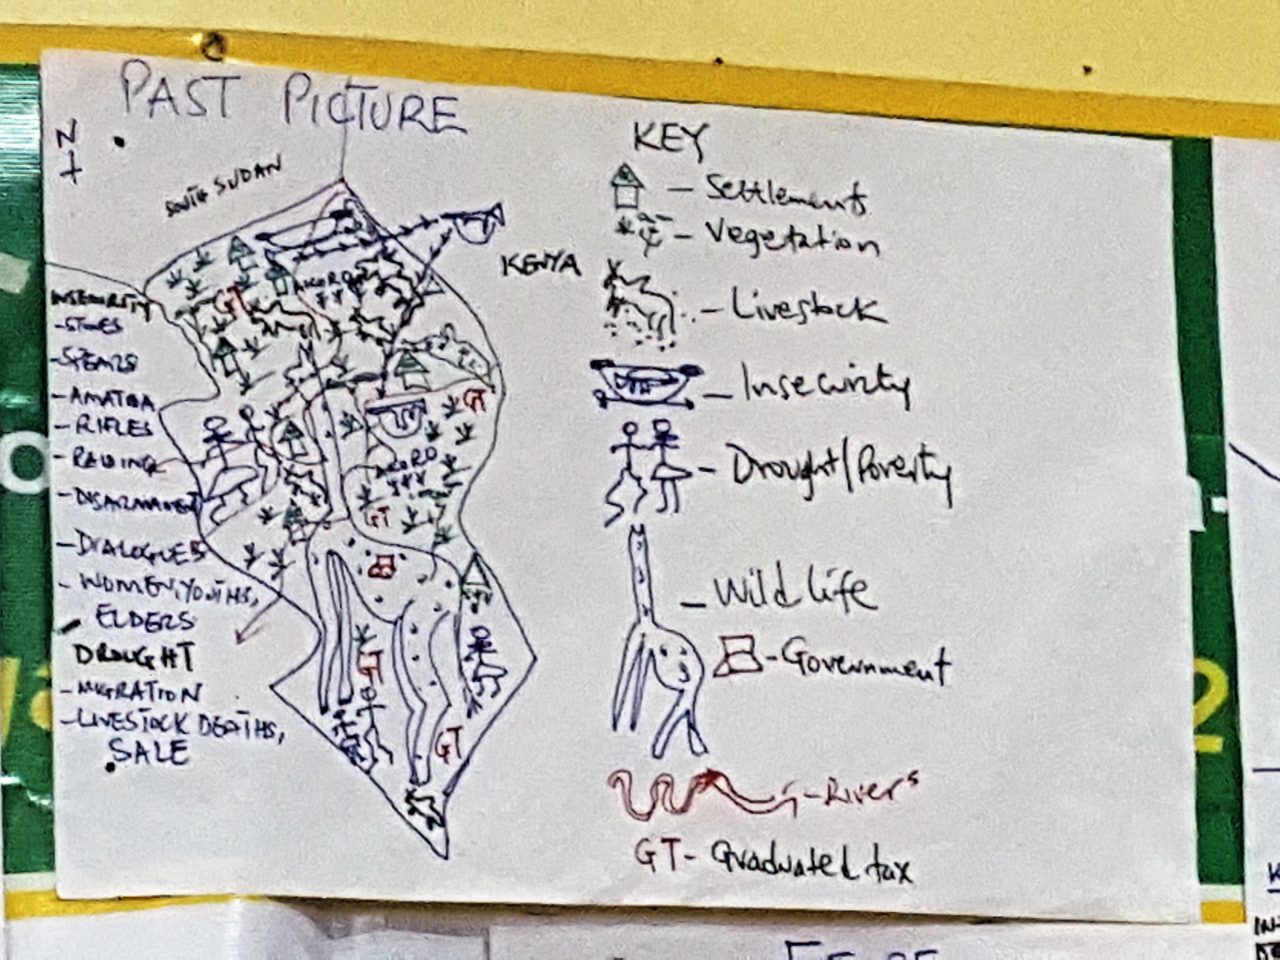 PAST PICTURE
N
SOUTH SUDAN
KENYA
INSECURITY
-SPEARS
-AMATIDA
-RIFLES
-RAIDING
-DISARMAMENT
-DIALOGUES
-WOMEN, YOUTHS,
ELDERS
DROUGHT
-MIGRATION
-LIVESTOCK DEATHS,
SALE
GT
GT
AKORO
GT
GT
GT
KEY
- Settlements
- Vegetation
- Livestock
- Insecurity
- Drought/Poverty
- Wildlife
- Government
- Rivers
GT- Graduated tax
2